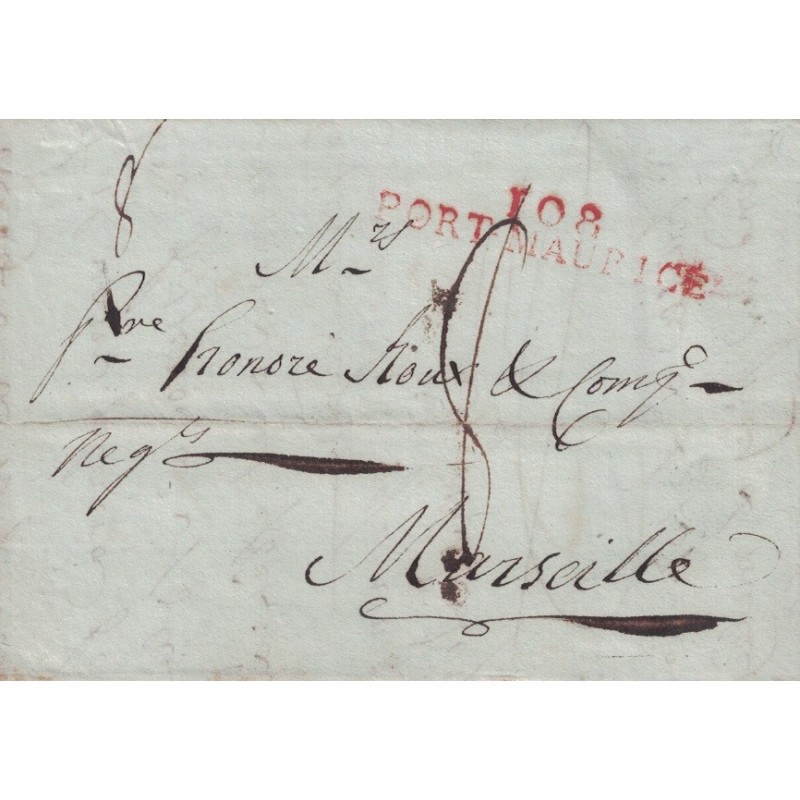 8
108
PORT-MAURICE
M.rs
P.rre honoré Roux & Comp.e
Neg.ts
8
Marseille